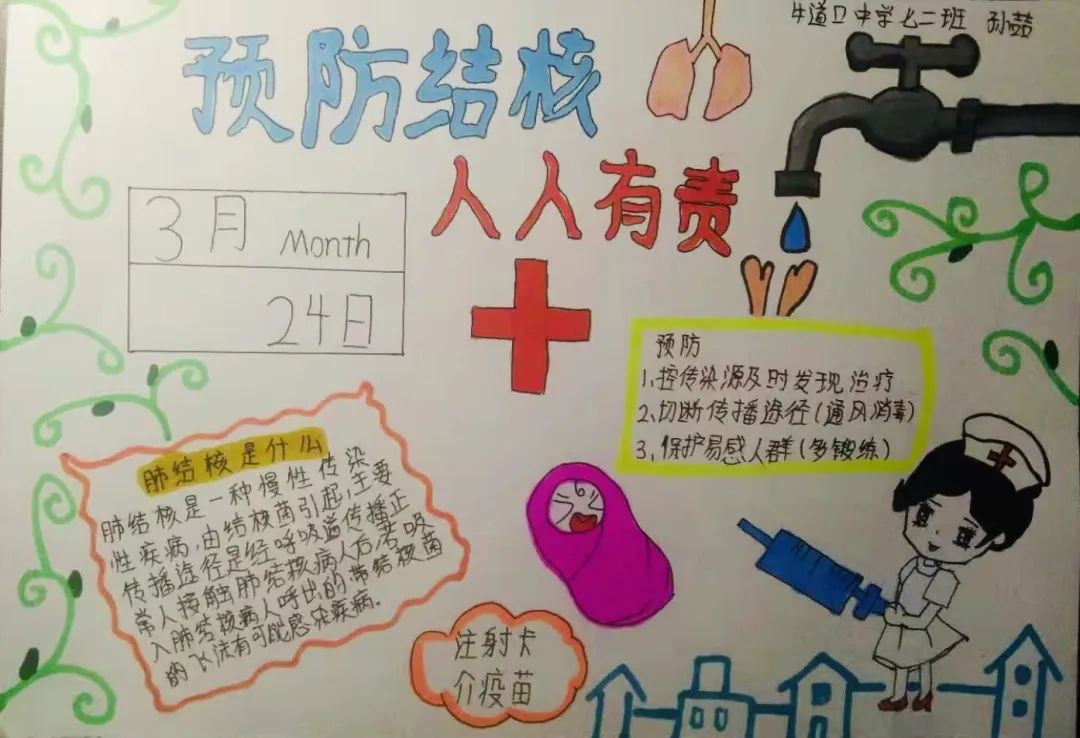 牛道口中学七二班 孙喆
预防结核
人人有责
3月 Month
24日
预防
1、控传染源及时发现治疗
2、切断传播途径(通风消毒)
3、保护易感人群(多锻练)
肺结核是什么
肺结核是一种慢性传染
性疾病,由结核菌引起,主要
传播途径是经呼吸道传播正
常人接触肺结核病人后,若吸
入肺结核病人呼出的带结核菌
的飞沫有可能感染疾病.
注射卡
介疫苗